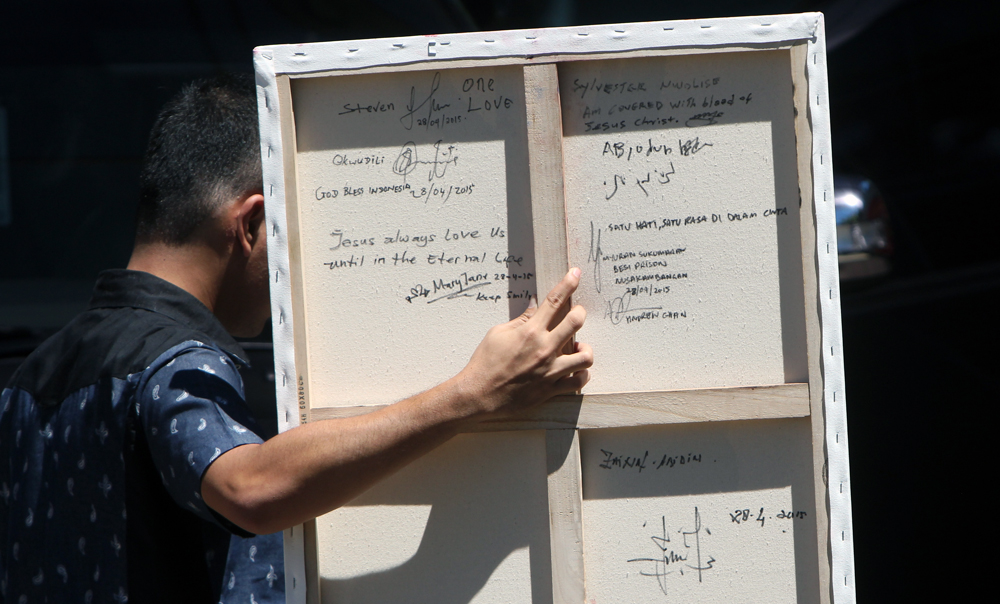 Steven
One
LOVE
28/04/2015
OKWUDILI
GOD BLESS INDONESIA 28/04/2015
Jesus always Love Us
until in the Eternal Life
Mary Jane 28-4-15
keep Smil
SYLVESTER NWOLISE
AM COVERED WITH blood of
Jesus Christ.
ABIODUN
SATU HATI, SATU RASA DI DALAM CINTA
MYURAN SUKUMARAN
BESI PRISON
NUSAKAMBANGAN
28/04/2015
ANDREW CHAN
ZAINAL . ABIDIN .
28. 4. 2015
60X80cm